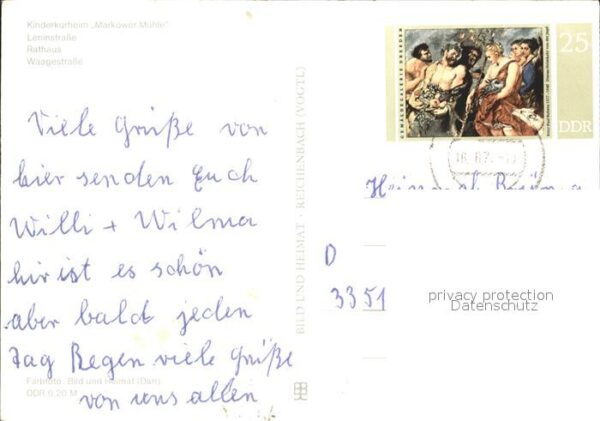 Kinderkurheim „Markower Mühle"
Leninstraße
Rathaus
Waagestraße
Viele Grüße von
hier senden Euch
Willi + Wilma
hir ist es schön
aber bald jeden
Tag Regen viele Grüße
von uns allen
Farbfoto: Bild und Heimat (Dan)
DDR 0,20 M
BILD UND HEIMAT · REICHENBACH (VOGTL)
GEMÄLDEGALERIE DRESDEN
25
DDR
D
3351
privacy protection
Datenschutz